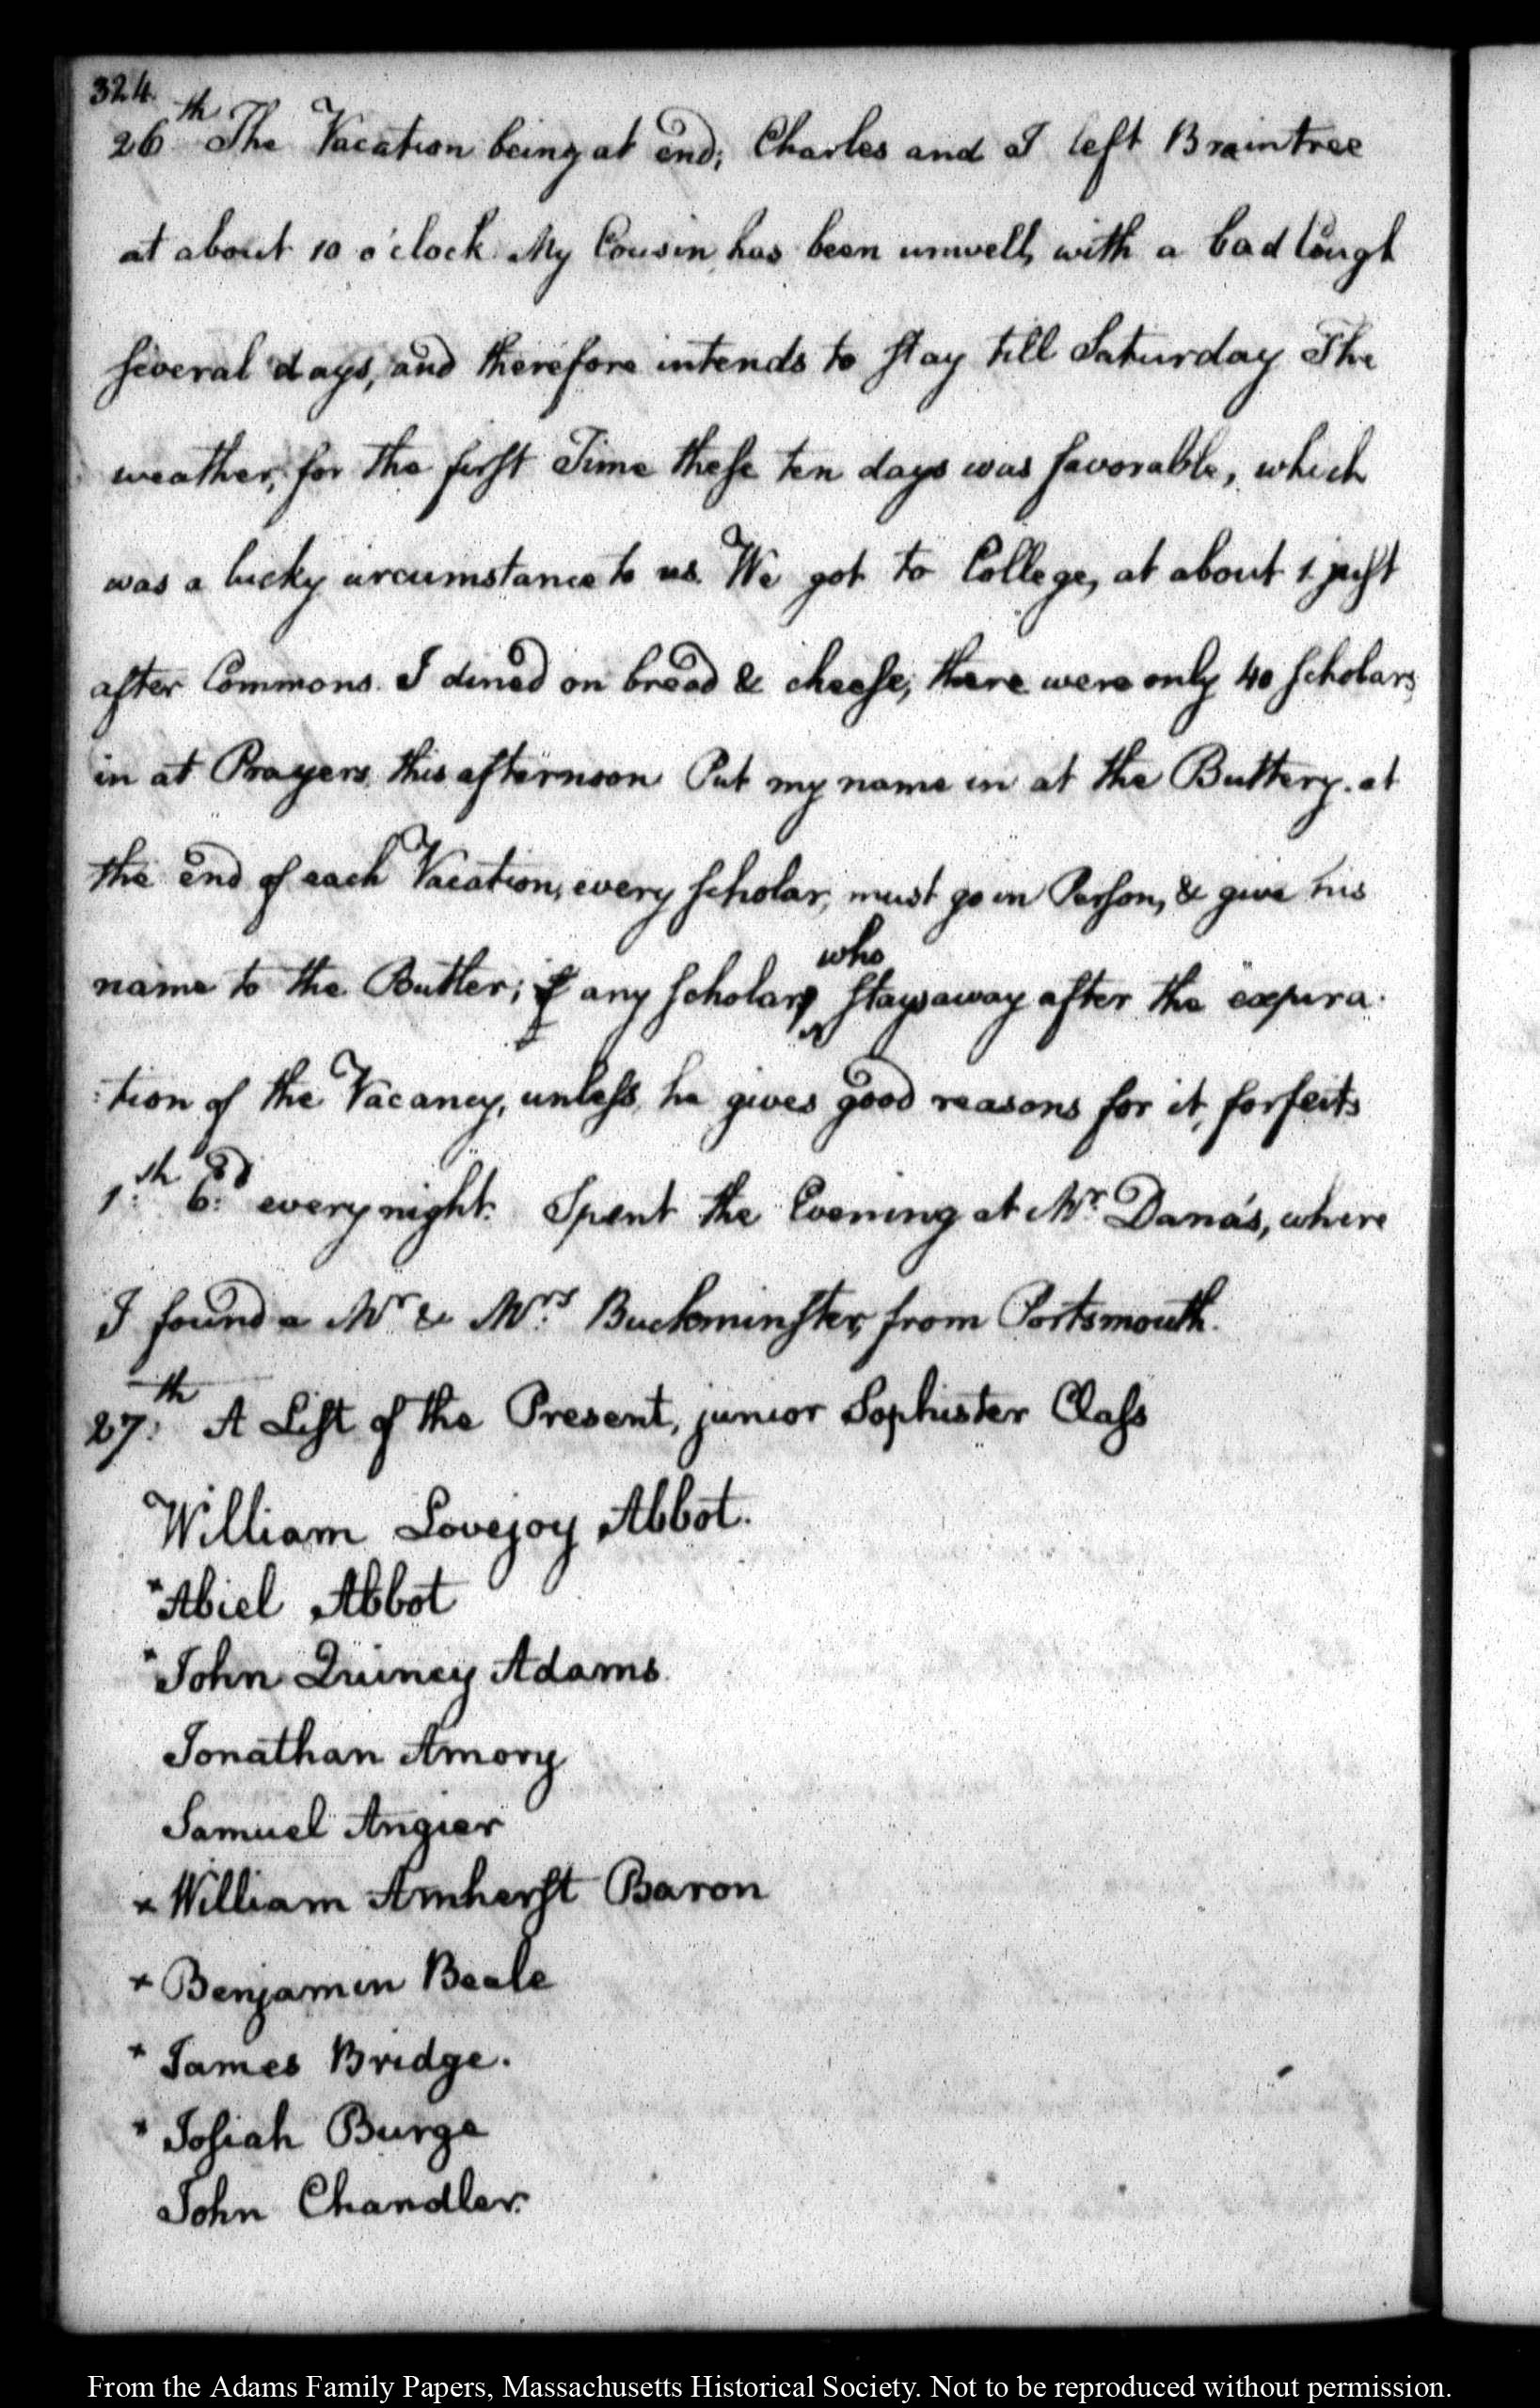 324.
26th The Vacation being at end; Charles and I left Braintree
at about 10 o'clock. My Cousin, has been unwell, with a bad Cough
several days, and therefore intends to stay till Saturday The
weather, for the first Time these ten days was favorable, which
was a lucky circumstance to us. We got to College, at about 1. just
after Commons. I dined on bread & cheese, there were only 40 scholars,
in at Prayers, this afternoon Put my name in at the Buttery. at
the end of each Vacation, every scholar, must go in Person, & give his
name to the Butler; any scholar, who stays away after the expira:
:tion of the Vacancy, unless, he gives good reasons for it, forfeits
1:sh 6:d every night. Spent the Evening at Mr. Dana's, where
I found a Mr & Mrs Buckminster, from Portsmouth.
27:th A List of the Present, junior Sophister Class
William Lovejoy Abbot.
*Abiel Abbot
*John Quincy Adams.
Jonathan Amory
Samuel Angier
× William Amherst Baron
× Benjamin Beale
* James Bridge.
* Josiah Burge
John Chandler.
From the Adams Family Papers, Massachusetts Historical Society. Not to be reproduced without permission.